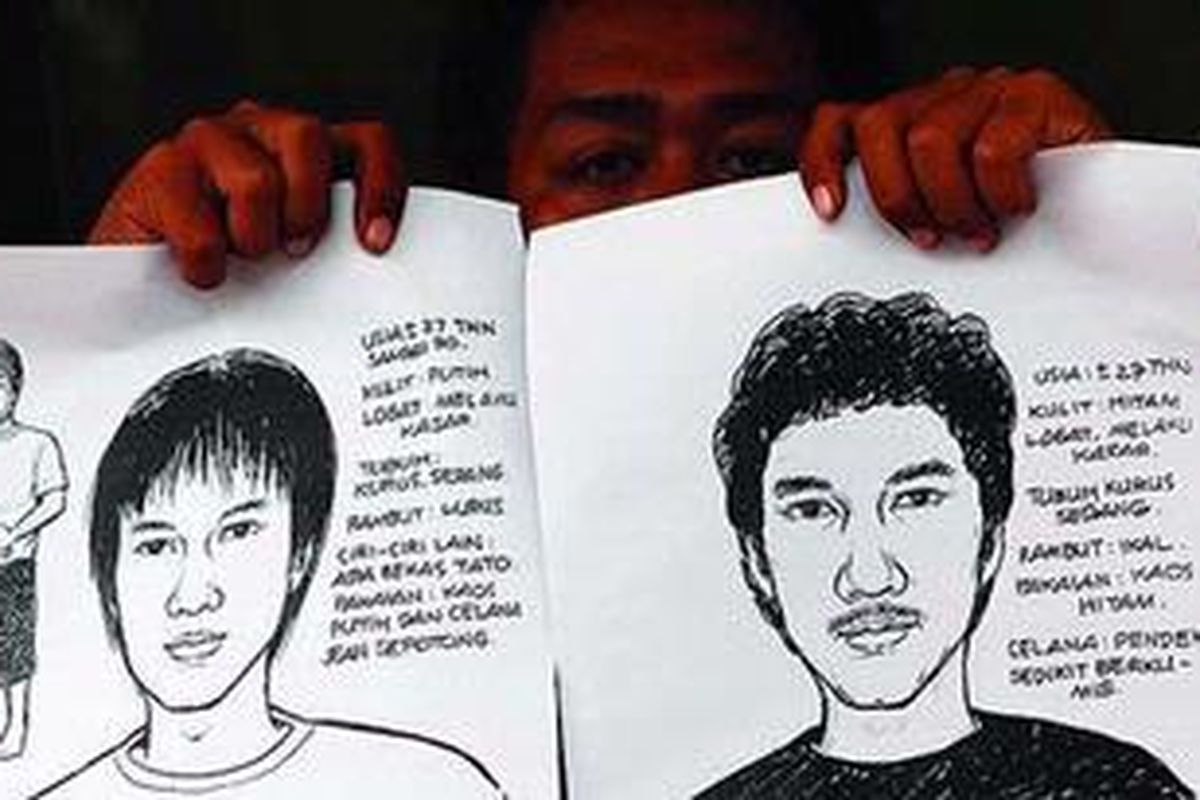 USIA ± 27 THN
KULIT : PUTIH
LOGAT : MELAYU
KASAR.
TUBUH :
KURUS, SEDANG
RAMBUT : LURUS
CIRI-CIRI LAIN :
ADA BEKAS TATO
PAKAIAN : KAOS
PUTIH DAN CELANA
JEAN SEPOTONG.
USIA : ± 27 THN
KULIT : HITAM
LOGAT. MELAYU
KASAR.
TUBUH KURUS
SEDANG
RAMBUT : IKAL.
PAKAIAN : KAOS
HITAM.
CELANA : PENDEK
SEDIKIT BERKU-
MIS.